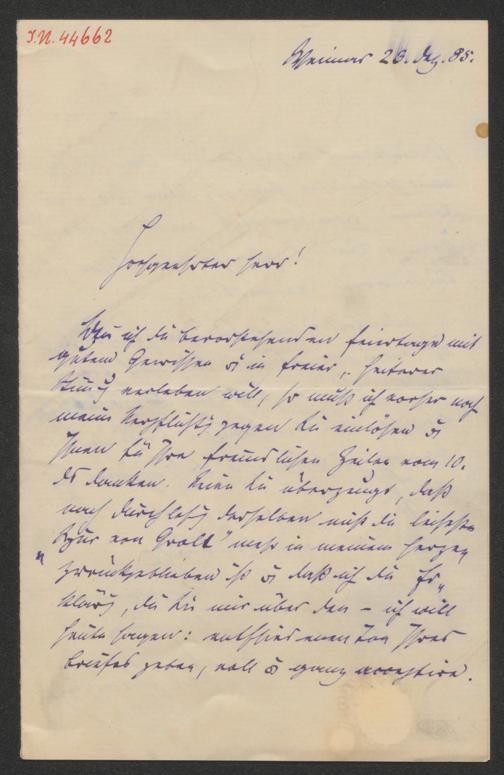 I.N. 44662
Weimar 23. Dez. 85.
Hochgeehrter Herr!
Da ich die bevorstehenden Feiertage mit
gutem Gewissen u in freier, heiterer
Stimg verleben will, so muß ich vorher noch
meine Verpflichtg gegen Sie einlösen u
Ihnen für Ihre freundlichen Zeilen vom 10.
ds danken. Seien Sie überzeugt, daß
nach Durchlesg derselben nicht die leiseste
Spur von „Groll“ mehr in meinem Herzen
zurückgeblieben ist u daß ich die Er-
klärg, die Sie mir über den – ich will
heute sagen: entschiedenen Ton Ihres
Briefes geben, voll u ganz acceptire.